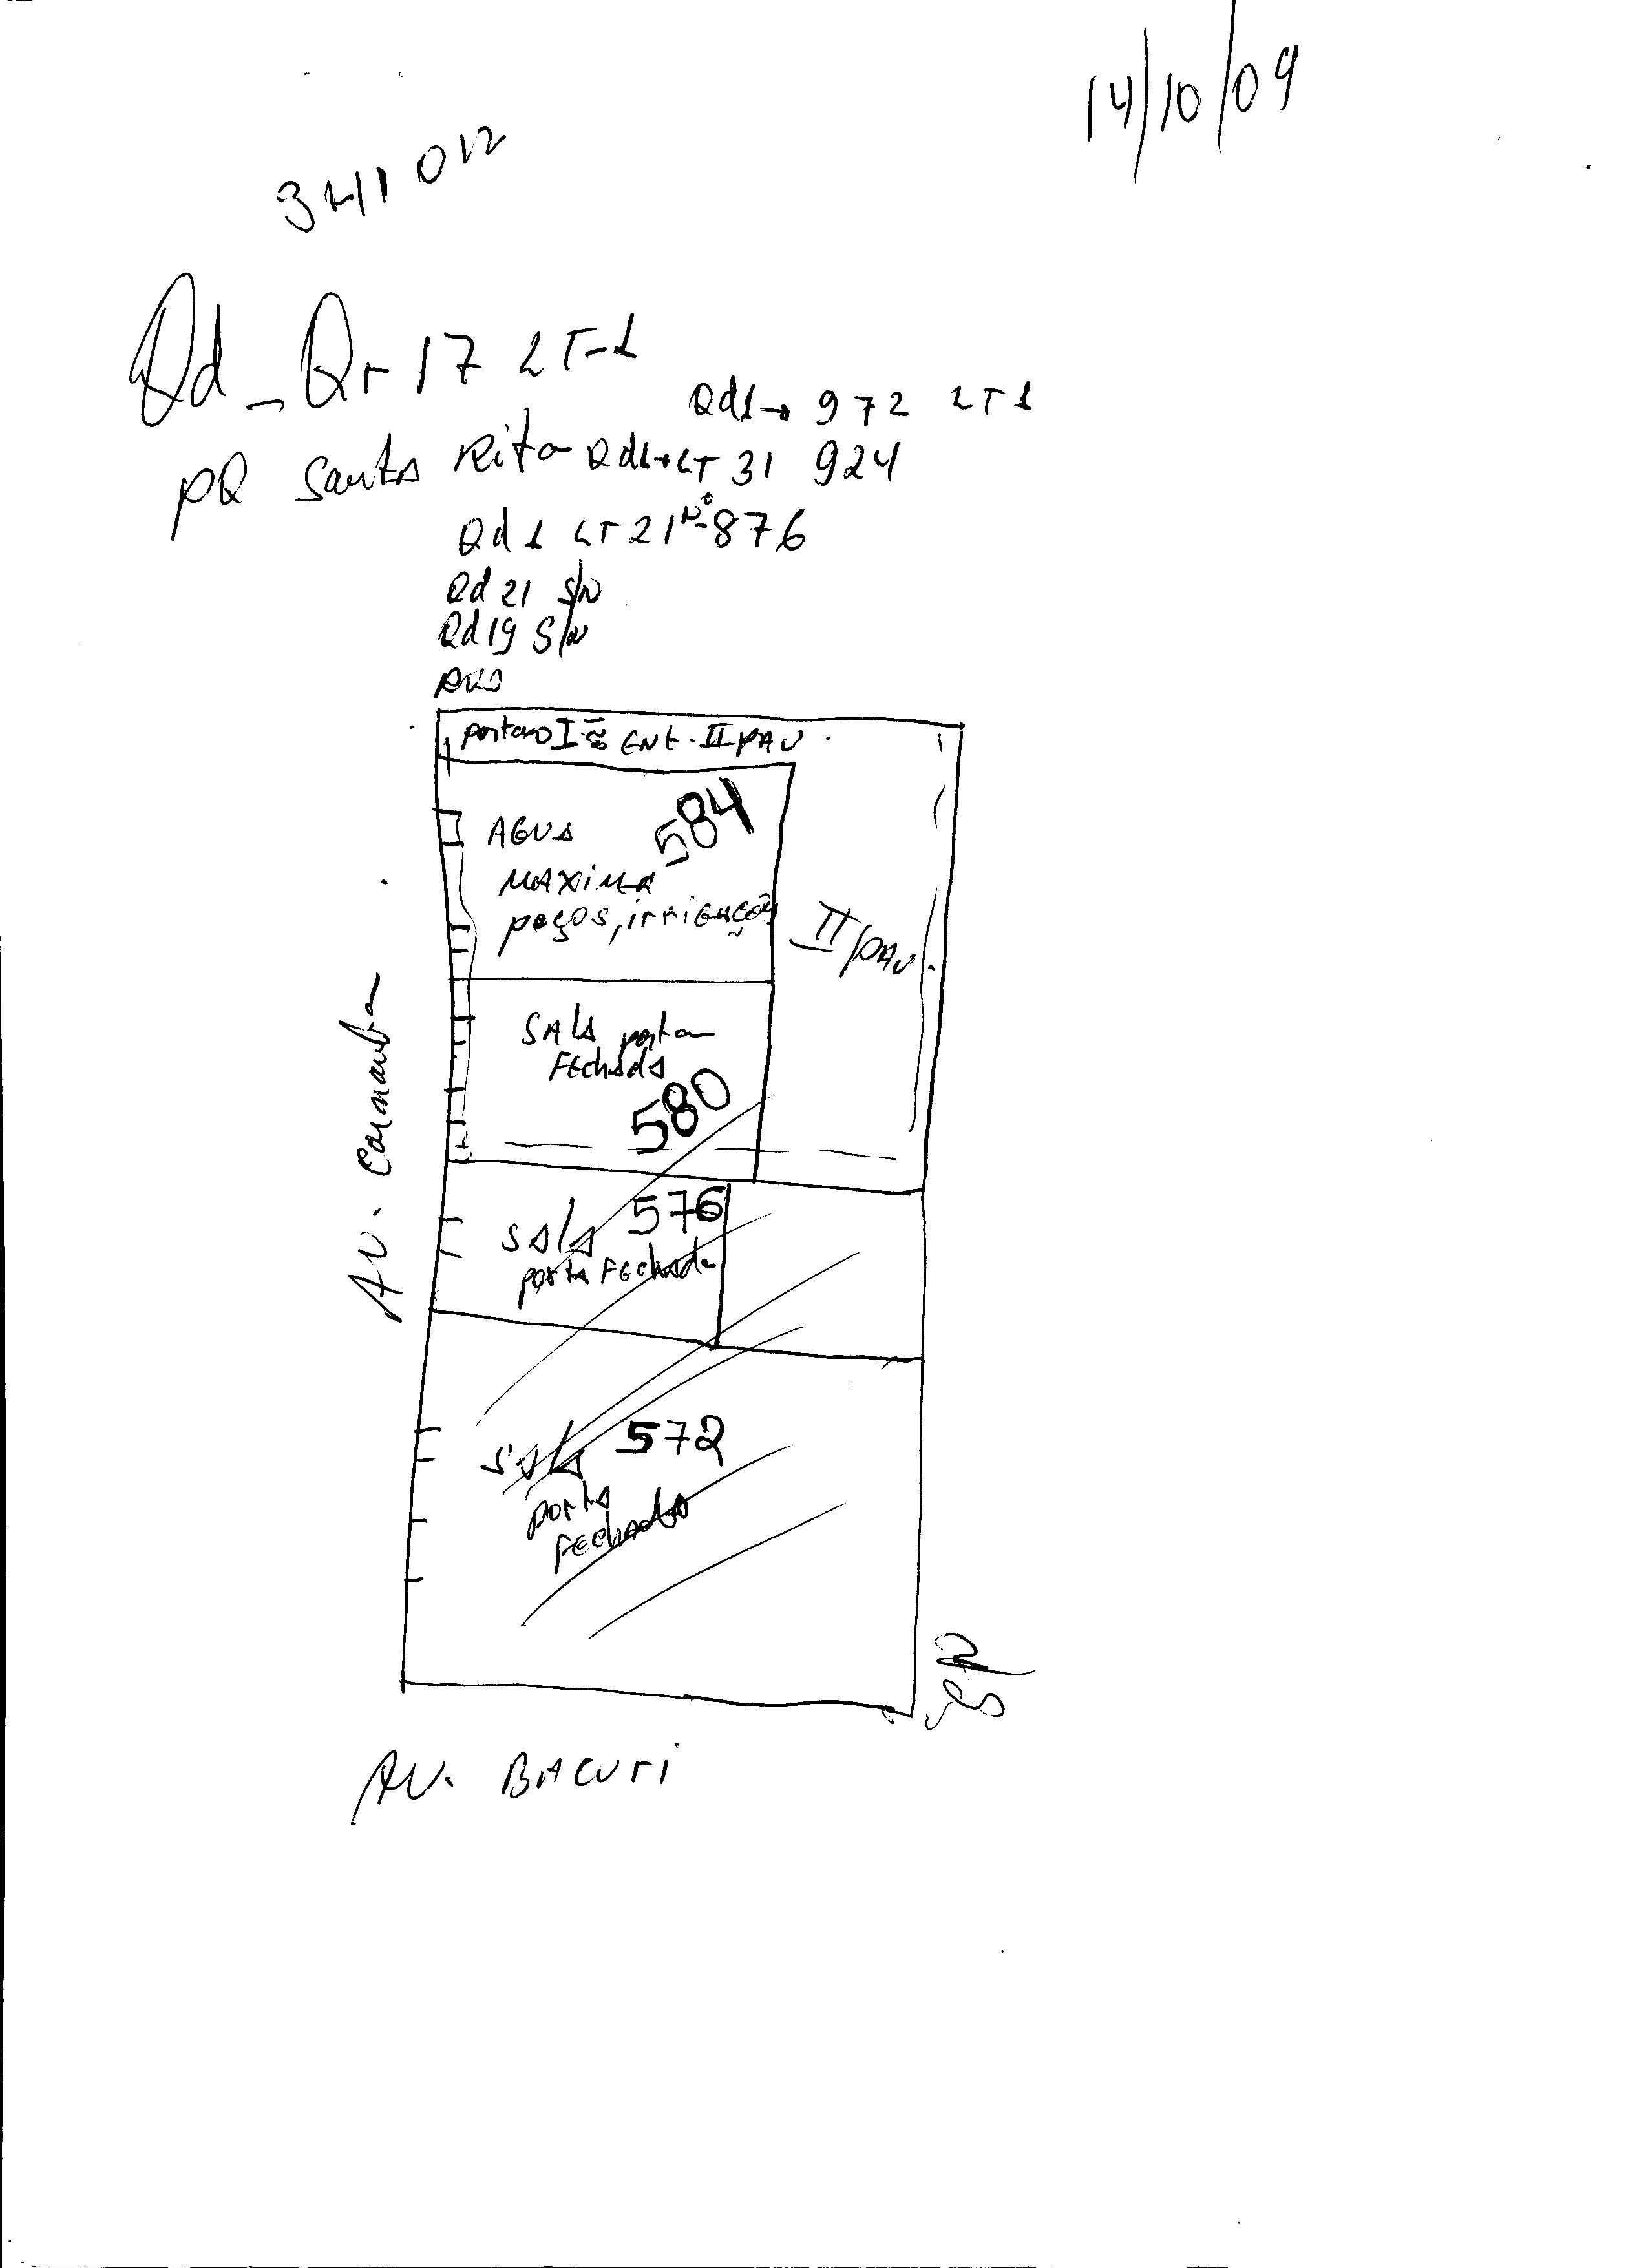 14/10/09
Qd - Qr 17 LT-1
Qd1→ 972 LT 1
PQ Santa Rita Qd1→LT 31 924
Qd 1 LT 21 Nº 876
Qd 21 S/N
Qd 19 S/N
portão ENt. II PAV.
584
AGUA
MAXIMA
peços, irrigações
II PAV.
SALA porta
FEchada
580
Av. Carnauba
SALA 576
porta FEchada
SALA 572
porta
FEchada
AV. BACURI